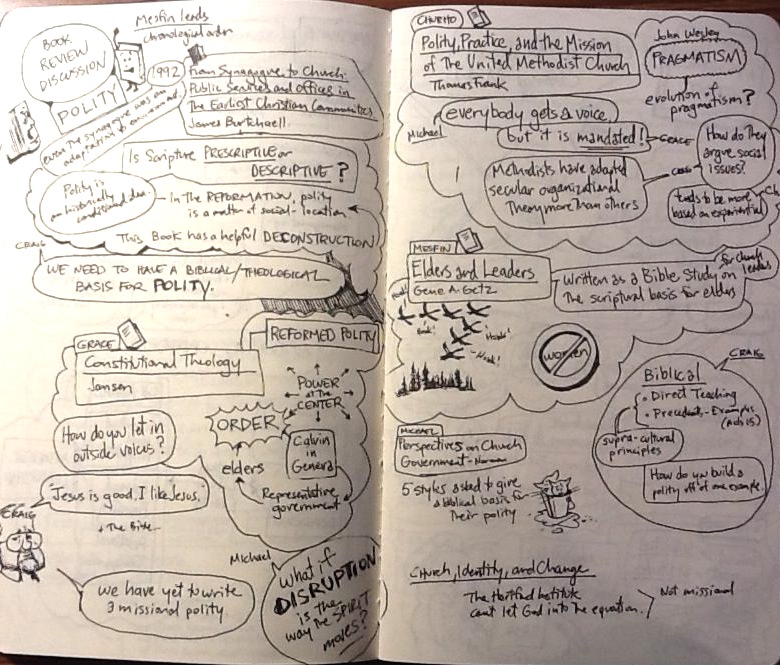 BOOK
REVIEW
DISCUSSION
POLITY
Mesfin leads
chronological order
1992
From Synagogue to Church:
Public Services and Offices in
The Earliest Christian Communities
James Burtchaell.
even the synagogue was an
adaptation to environment.
Is Scripture PRESCRIPTIVE or
DESCRIPTIVE ?
Polity is
an historically
conditioned idea.
In the REFORMATION, polity
is a matter of social-location
This Book has a helpful DECONSTRUCTION
CRAIG
WE NEED TO HAVE A BIBLICAL/THEOLOGICAL
BASIS FOR POLITY.
GRACE
REFORMED POLITY
Constitutional Theology
Jansen
POWER
at The
CENTER
ORDER
How do you let in
outside voices?
Calvin
in
Geneva
elders
Representative
government
"Jesus is good, I like Jesus."
+ The Bible
CRAIG
we have yet to write
a missional polity.
Michael
What if
DISRUPTION
is the
way the SPIRIT
moves?
Polity, Practice, and the Mission
of The United Methodist Church
Thomas Frank
John Wesley
PRAGMATISM
evolution of
pragmatism?
everybody gets a voice
Michael
but it is mandated!
GRACE
How do They
argue social
issues?
Methodists have adapted
secular organizational
Theory more Than others
CRAIG
tends to be more
based on experiential
MESFIN
Elders and Leaders
Gene A. Getz
Written as a Bible Study on
The scriptural basis for elders
for church
leaders
Honk!
Honk!
Honk!
women
CRAIG
Biblical
Direct Teaching
Precedent - Examples
(Acts 15)
supra-cultural
principles
How do you build a
polity off of one example.
MICHAEL
Perspectives on Church
Government - Norman
5 styles asked to give
a biblical basis for
Their polity
Church, Identity, and Change
The Hartford Institute
can't let God into the equation.
Not missional